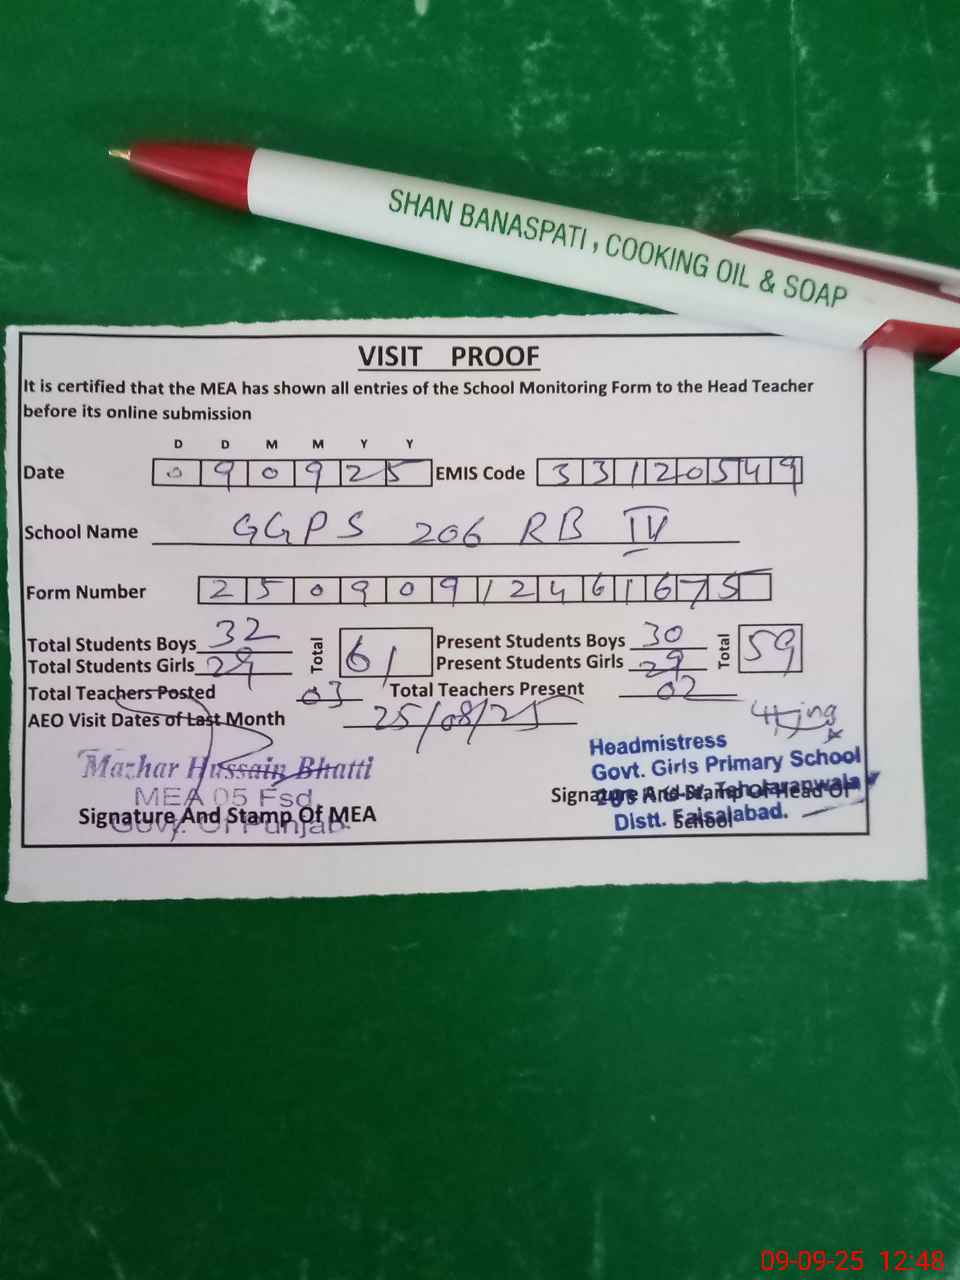 SHAN BANASPATI, COOKING OIL & SOAP
VISIT PROOF
It is certified that the MEA has shown all entries of the School Monitoring Form to the Head Teacher
before its online submission
D D M M Y Y
Date 0 9 0 9 2 5 EMIS Code 3 3 1 2 0 5 4 9
School Name GGPS 206 RB IV
Form Number 2 5 0 9 0 9 1 2 4 6 1 6 7 5
Total Students Boys 32 Total 61 Present Students Boys 30 Total 59
Total Students Girls 29 Present Students Girls 29
Total Teachers Posted 03 Total Teachers Present 02
AEO Visit Dates of Last Month 25/08/25
Mazhar Hussain Bhatti
MEA 05 Fsd.
Govt. Of Punjab.
Signature And Stamp Of MEA
Headmistress
Govt. Girls Primary School
Signature And Stamp Of Head Of
School
Distt. Faisalabad.
09-09-25 12:48